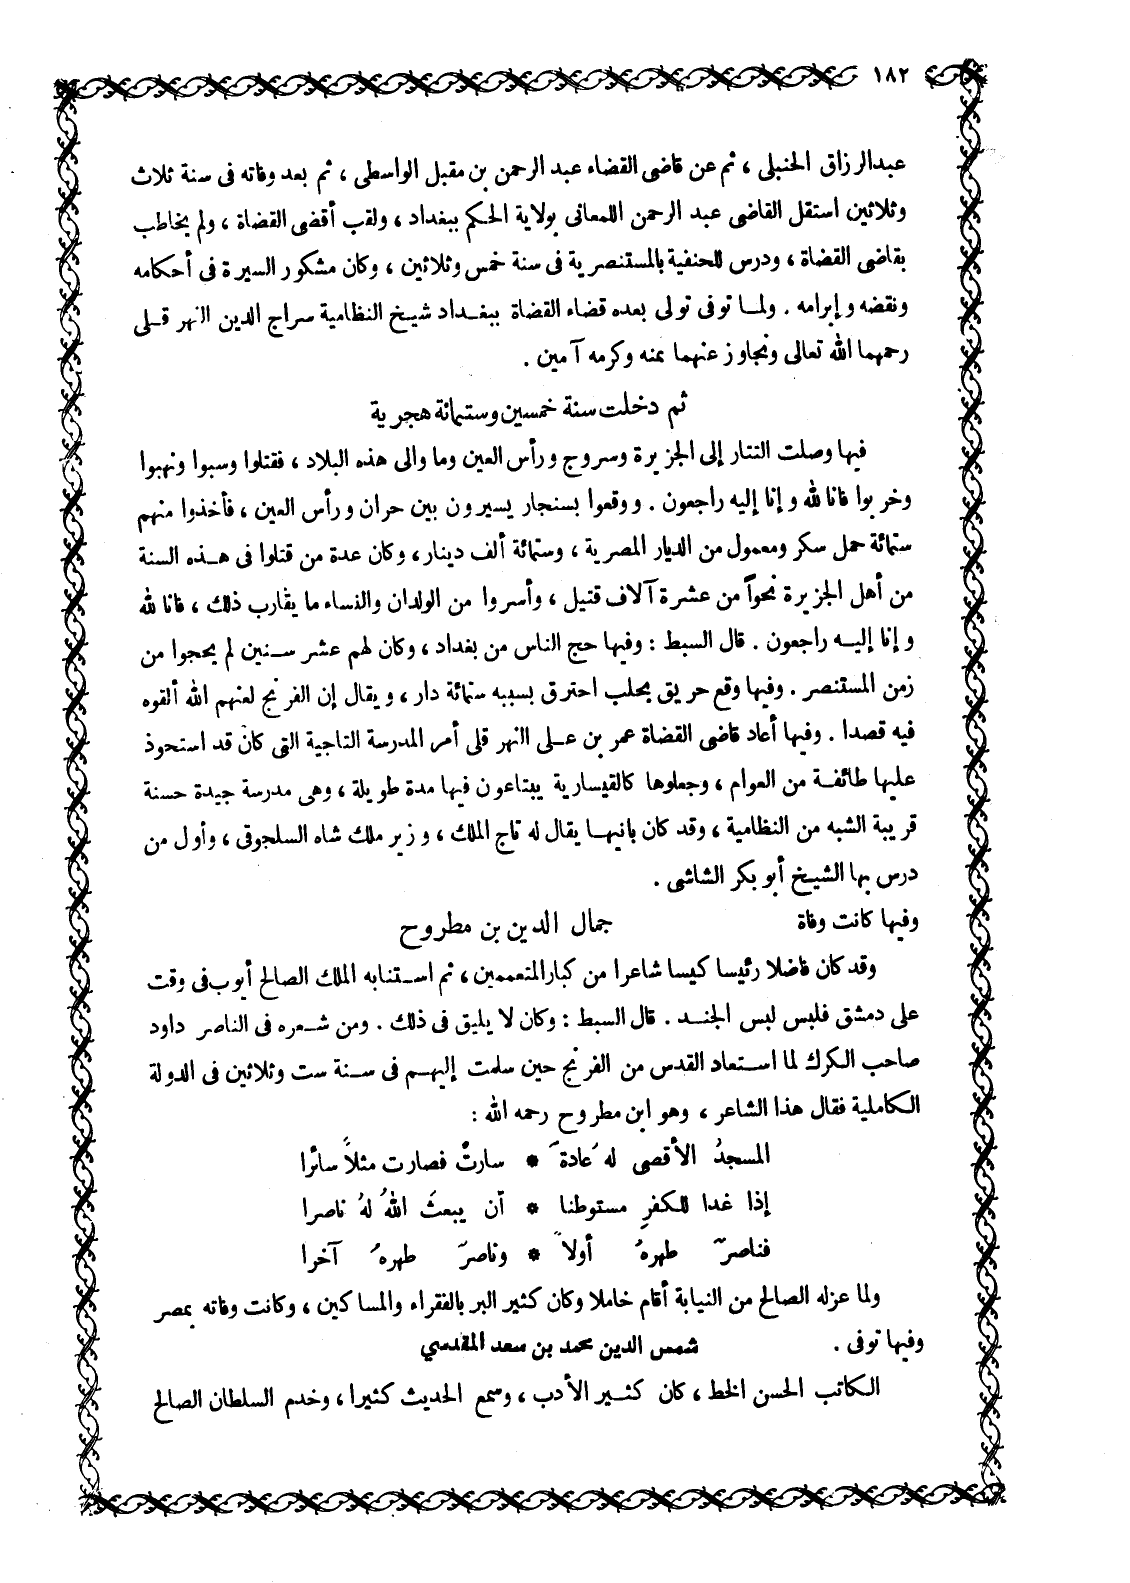 ١٨٢
عبدالرزاق الحنبلى ، ثم عن قاضى القضاء عبد الرحمن بن مقبل الواسطى ، ثم بعد وفاته فى سنة ثلاث
وثلاثين استقل القاضى عبد الرحمن اللمعانى بولاية الحكم ببغداد ، ولقب أقضى القضاة ، ولم يخاطب
بقاضى القضاة ، ودرس للحنفية بالمستنصرية فى سنة خمس وثلاثين ، وكان مشكور السيرة فى أحكامه
ونقضه وإبرامه . ولما توفى تولى بعده قضاء القضاة ببغداد شيخ النظامية سراج الدين النهر قلى
رحمهما الله تعالى وتجاوز عنهما بمنه وكرمه آمين .
ثم دخلت سنة خمسين وستمائة هجرية
فيها وصلت التتار إلى الجزيرة وسروج ورأس العين وما والى هذه البلاد ، فقتلوا وسبوا ونهبوا
وخربوا فانا لله وإنا إليه راجعون . ووقعوا بسنجار يسيرون بين حران ورأس العين ، فأخذوا منهم
ستمائة حمل سكر ومعمول من الديار المصرية ، وستمائة ألف دينار ، وكان عدة من قتلوا فى هذه السنة
من أهل الجزيرة نحواً من عشرة آلاف قتيل ، وأسروا من الولدان والنساء ما يقارب ذلك ، فانا لله
وإنا إليه راجعون . قال السبط : وفيها حج الناس من بغداد ، وكان لهم عشر سنين لم يحجوا من
زمن المستنصر . وفيها وقع حريق بحلب احترق بسببه ستمائة دار ، ويقال إن الفرنج لعنهم الله ألقوه
فيه قصدا . وفيها أعاد قاضى القضاة عمر بن على النهر قلى أمر المدرسة التاجية التى كان قد استحوذ
عليها طائفة من العوام ، وجعلوها كالقيسارية يبتاعون فيها مدة طويلة ، وهى مدرسة جيدة حسنة
قريبة الشبه من النظامية ، وقد كان بانيها يقال له تاج الملك ، وزير ملك شاه السلجوقى ، وأول من
درس بها الشيخ أبو بكر الشاشى .
وفيها كانت وفاة جمال الدين بن مطروح
وقد كان فاضلا رئيسا كيسا شاعرا من كبار المتعممين ، ثم استنابه الملك الصالح أيوب فى وقت
على دمشق فلبس لبس الجند . قال السبط : وكان لا يليق فى ذلك . ومن شعره فى الناصر داود
صاحب الكرك لما استعاد القدس من الفرنج حين سلمت إليهم فى سنة ست وثلاثين فى الدولة
الكاملية فقال هذا الشاعر ، وهو ابن مطروح رحمه الله :
المسجدُ الأقصى لهُ عادةٌ * سارتْ فصارت مثلاً سائرا
إذا غدا للكفرِ مستوطنا * أن يبعثَ اللهُ لهُ ناصرا
فناصرٌ طهرهُ أولاً * وناصرٌ طهرهُ آخرا
ولما عزله الصالح من النيابة أقام خاملا وكان كثير البر بالفقراء والمساكين ، وكانت وفاته بمصر
وفيها توفى . شمس الدين محمد بن سعد المقدسي
الكاتب الحسن الخط ، كان كثير الأدب ، وسمع الحديث كثيرا ، وخدم السلطان الصالح